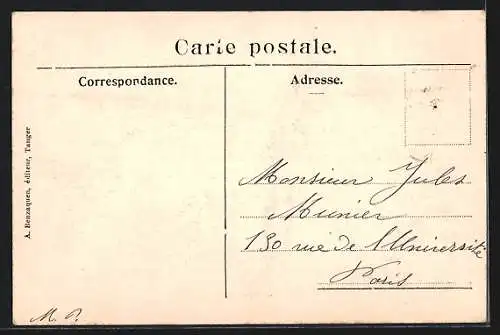 Carte postale.
Correspondance.
Adresse.
A. Benzaquen, éditeur, Tanger
Monsieur Jules
Munier
130 rue de l'Université
Paris
M. P.